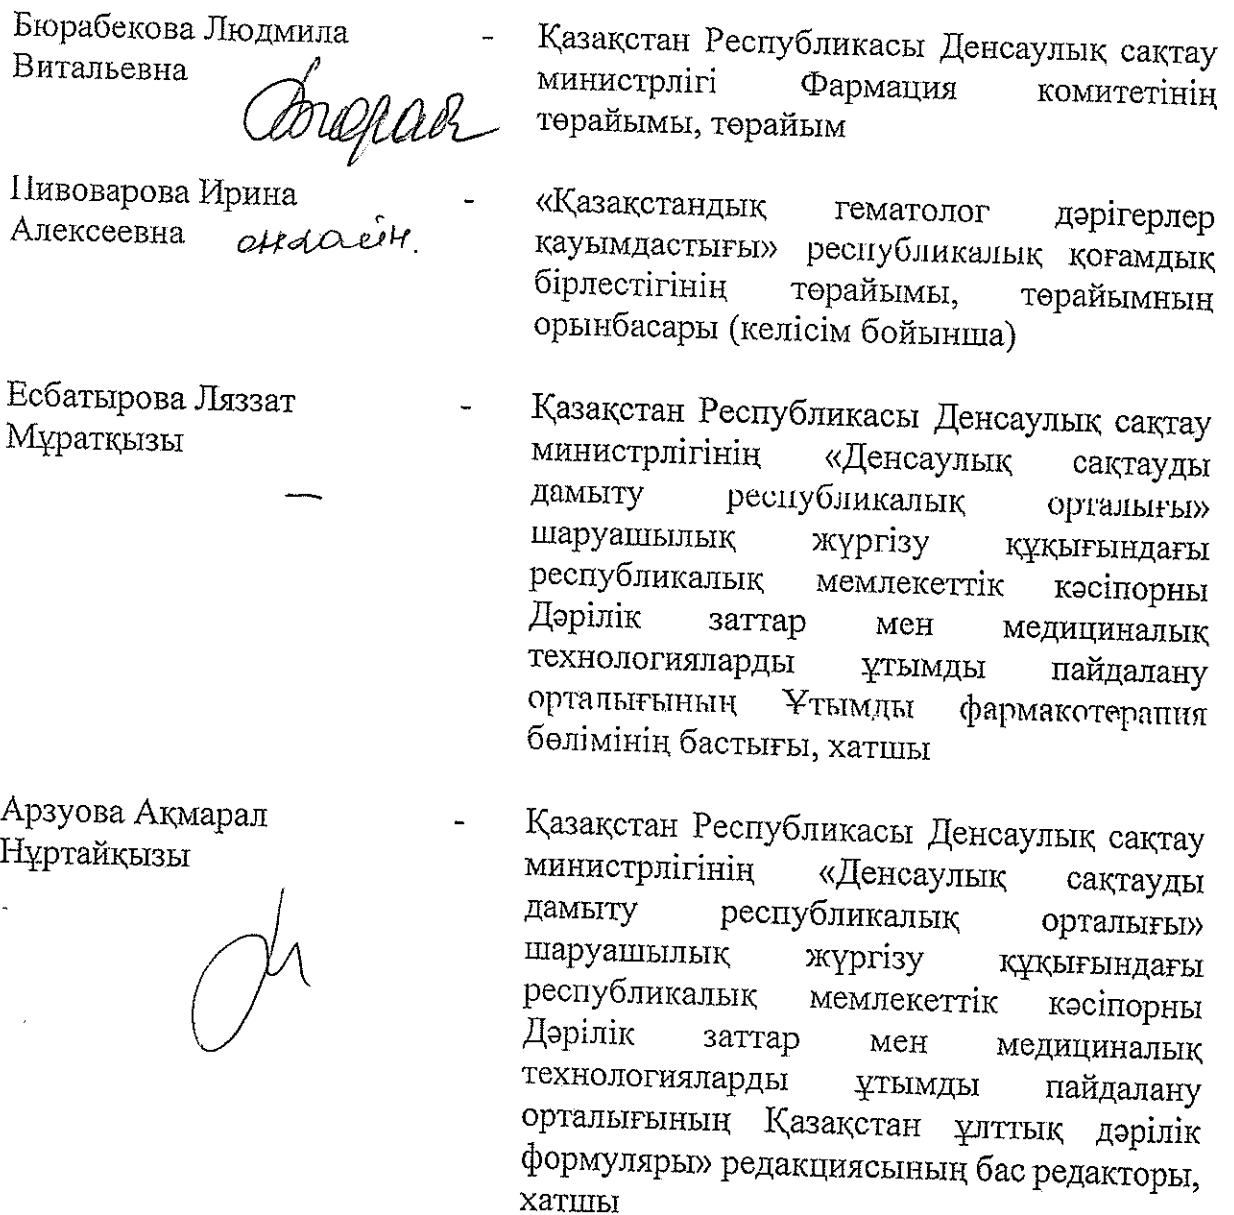 Бюрабекова Людмила
Витальевна
-
Қазақстан Республикасы Денсаулық сақтау
министрлігі Фармация комитетінің
төрайымы, төрайым
Пивоварова Ирина
Алексеевна онлайн.
-
«Қазақстандық гематолог дәрігерлер
қауымдастығы» республикалық қоғамдық
бірлестігінің төрайымы, төрайымның
орынбасары (келісім бойынша)
Есбатырова Ляззат
Мұратқызы
-
Қазақстан Республикасы Денсаулық сақтау
министрлігінің «Денсаулық сақтауды
дамыту республикалық орталығы»
шаруашылық жүргізу құқығындағы
республикалық мемлекеттік кәсіпорны
Дәрілік заттар мен медициналық
технологияларды ұтымды пайдалану
орталығының Ұтымды фармакотерапия
бөлімінің бастығы, хатшы
Арзуова Ақмарал
Нұртайқызы
-
Қазақстан Республикасы Денсаулық сақтау
министрлігінің «Денсаулық сақтауды
дамыту республикалық орталығы»
шаруашылық жүргізу құқығындағы
республикалық мемлекеттік кәсіпорны
Дәрілік заттар мен медициналық
технологияларды ұтымды пайдалану
орталығының Қазақстан ұлттық дәрілік
формуляры» редакциясының бас редакторы,
хатшы